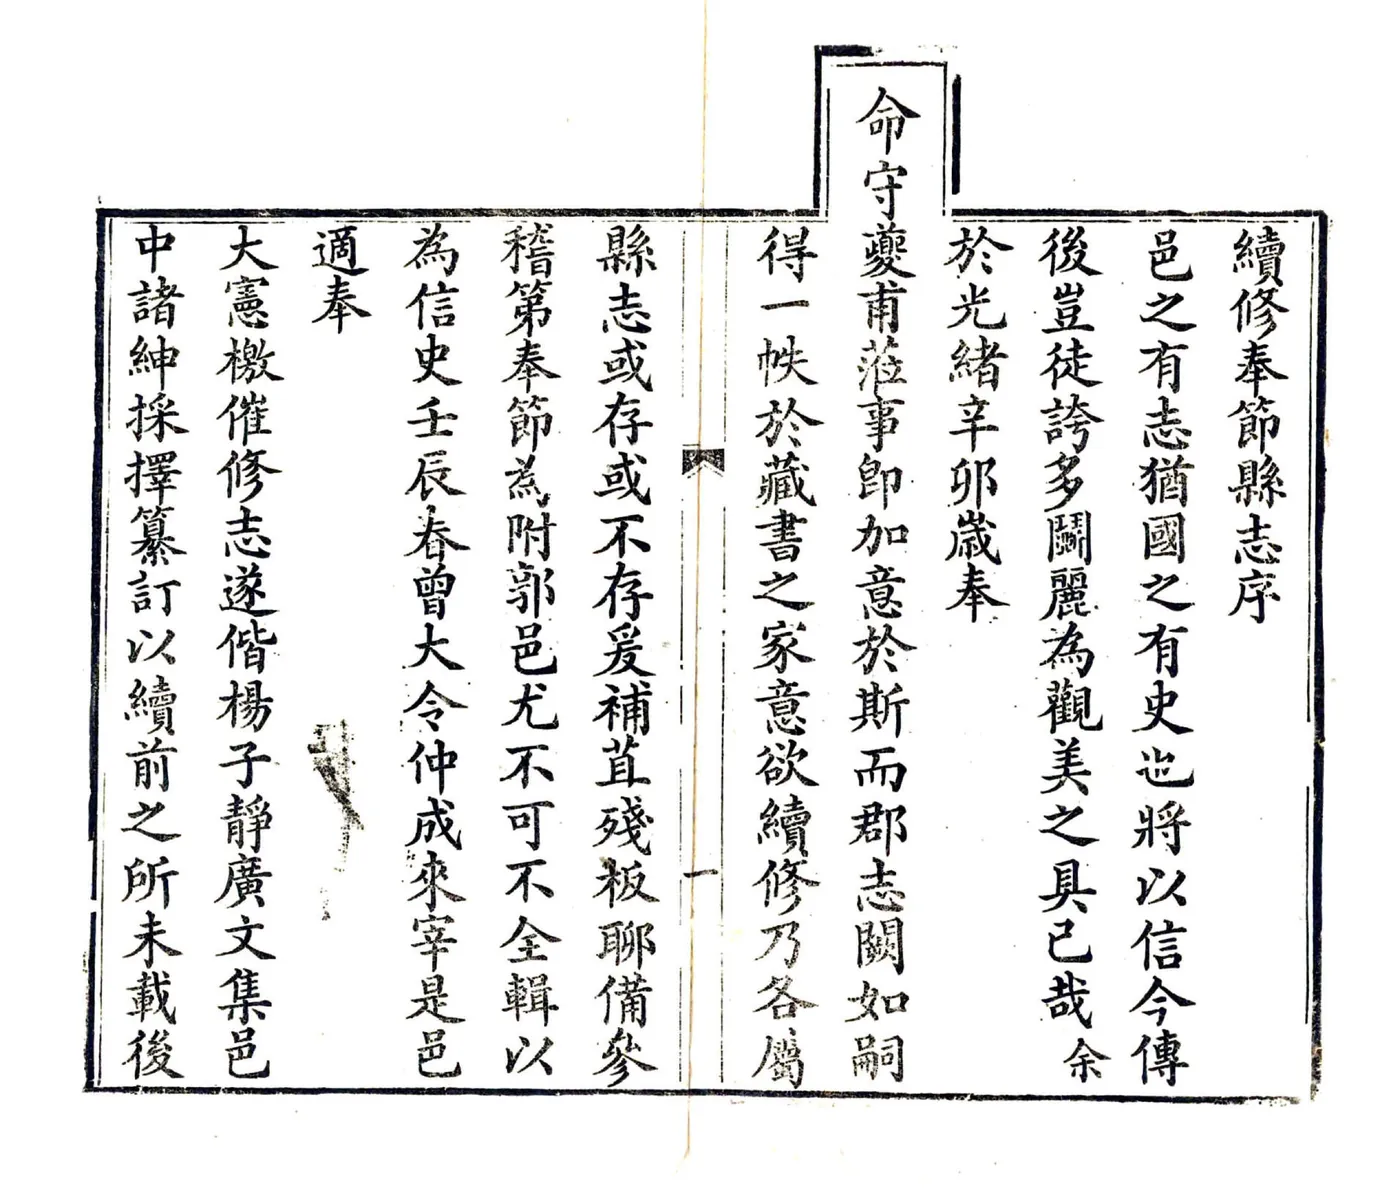 續修奉節縣志序
邑之有志猶國之有史也將以信今傳
後豈徒誇多鬭麗為觀美之具已哉余
於光緒辛卯歲奉
命守夔甫蒞事即加意於斯而郡志闕如嗣
得一帙於藏書之家意欲續修乃各屬
一
縣志或存或不存爰補苴殘板聊備參
稽第奉節為附郭邑尤不可不全輯以
為信史壬辰春曾大令仲成來宰是邑
適奉
大憲檄催修志遂偕楊子靜廣文集邑
中諸紳採擇纂訂以續前之所未載後